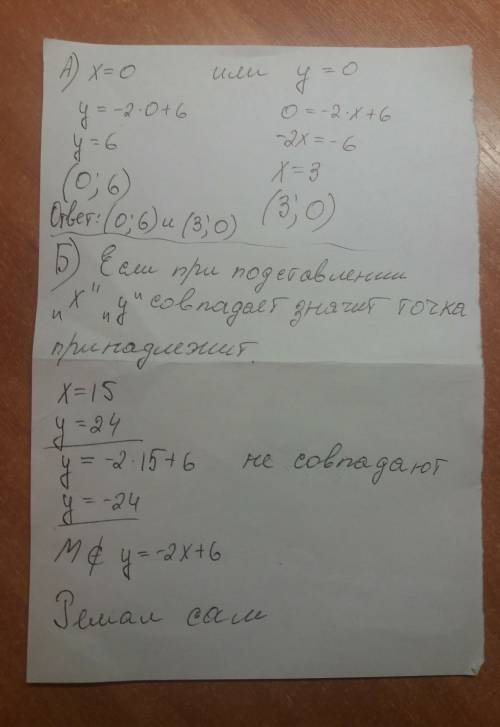 А) x=0 или y=0
y=-2·0+6 0=-2·x+6
y=6 -2x=-6
x=3
(0;6) (3;0)
Ответ: (0;6) и (3;0)
Б) Если при подставлении
„x" „y" совпадает значит точка
принадлежит.
x=15
y=24
y=-2·15+6 не совпадают
y=-24
M ⊄ y=-2x+6
Решал сам